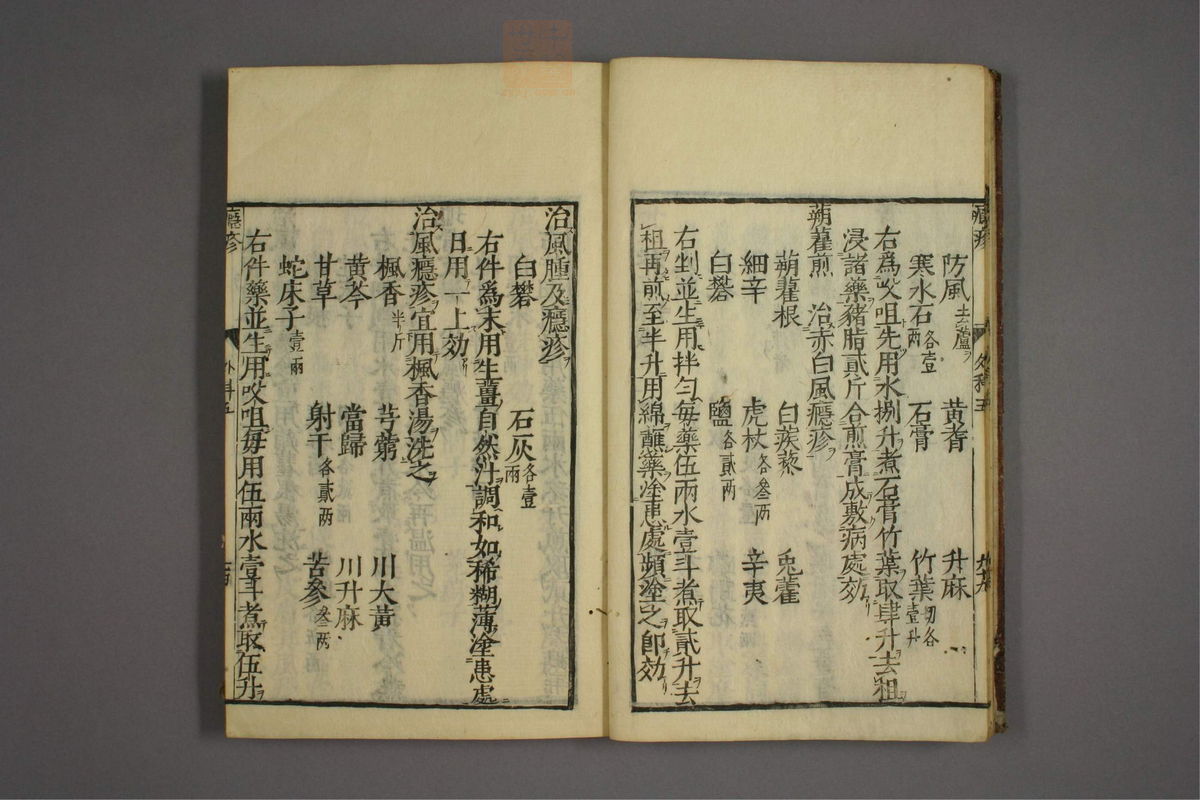 癮疹 外科五
防風去蘆 黃耆 升麻
寒水石各壹兩 石膏 竹葉切各壹升
右爲㕮咀先用水捌升煮石膏竹葉取肆升去柤
浸諸藥豬脂貳斤合煎膏成敷病處効
蒴藋煎 治赤白風癮疹
蒴藋根 白蒺藜 兎藿
細辛 虎杖各叁兩 辛夷
白礬 鹽各貳兩
右剉並生用拌勻每藥伍兩水壹斗煮取貳升去
柤再煎至半升用綿蘸藥塗患處頻塗之卽効
治風腫及癮疹
白礬 石灰各壹兩
右件爲末用生薑自然汁調和如稀糊薄塗患處
日用一上効
治風癮疹宜用楓香湯洗之
楓香半斤 芎藭 川大黃
黃芩 當歸 川升麻
甘草 射干各貳兩 苦參叁兩
蛇床子壹兩
右件藥並生用㕮咀每用伍兩水壹斗煮取伍升
癮疹 外科五